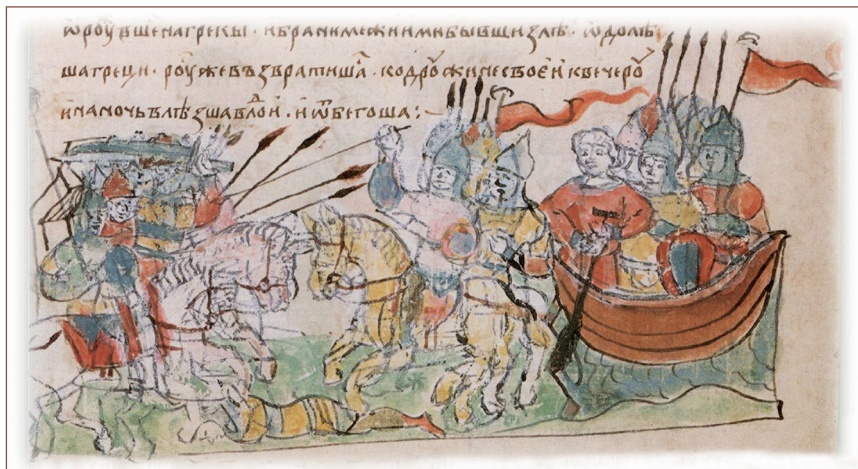 ѿроувшенагрекы · ибранимежиимибывшизлѣ · ѡдолѣ
шагреци · роужевъзвратишаⷭ · кодрꙋжинесвоеиквечерꙋ
инаночьвлѣзшавлоⷣи · иѿбегоша :